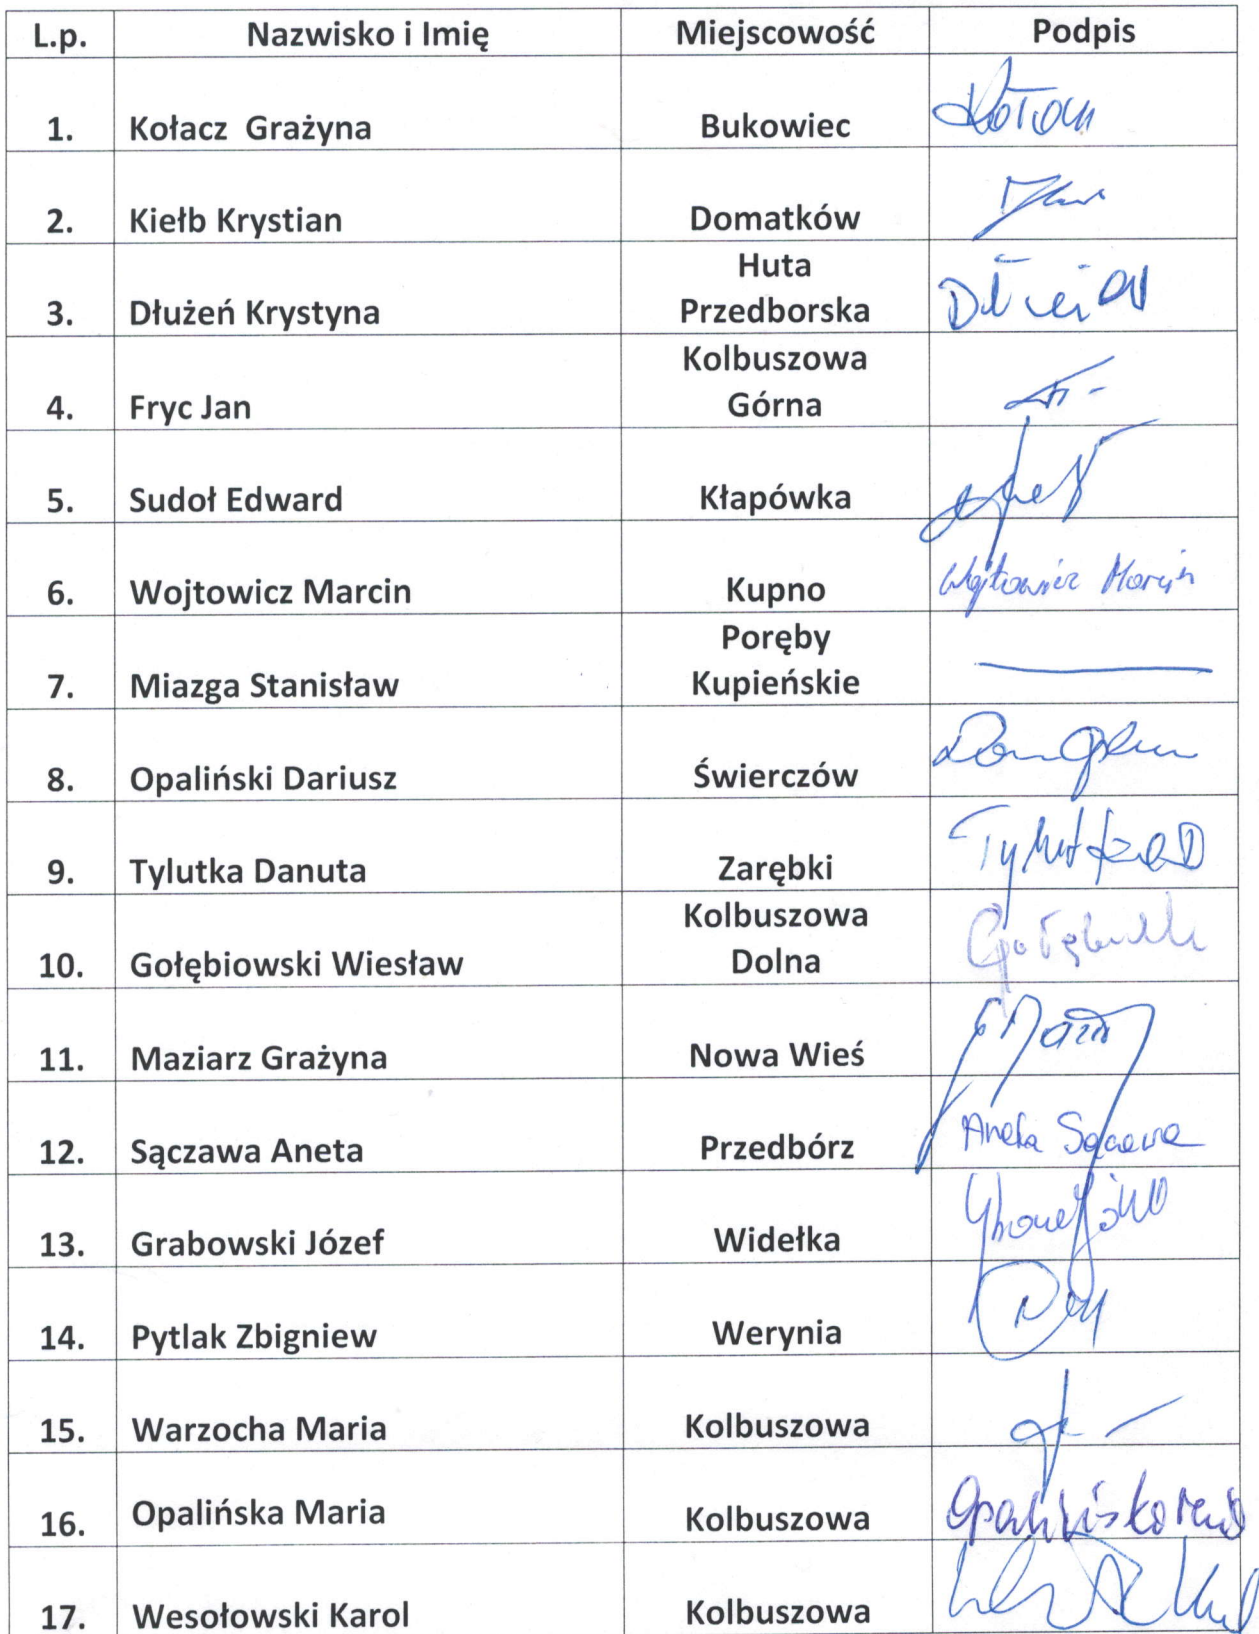 L.p. Nazwisko i Imię Miejscowość Podpis
1. Kołacz Grażyna Bukowiec
2. Kiełb Krystian Domatków
3. Dłużeń Krystyna Huta
Przedborska
4. Fryc Jan Kolbuszowa
Górna
5. Sudoł Edward Kłapówka
6. Wojtowicz Marcin Kupno Wojtowicz Marcin
7. Miazga Stanisław Poręby
Kupieńskie
8. Opaliński Dariusz Świerczów
9. Tylutka Danuta Zarębki
10. Gołębiowski Wiesław Kolbuszowa
Dolna
11. Maziarz Grażyna Nowa Wieś
12. Sączawa Aneta Przedbórz Aneta Sączawa
13. Grabowski Józef Widełka
14. Pytlak Zbigniew Werynia
15. Warzocha Maria Kolbuszowa
16. Opalińska Maria Kolbuszowa Opalińska
17. Wesołowski Karol Kolbuszowa